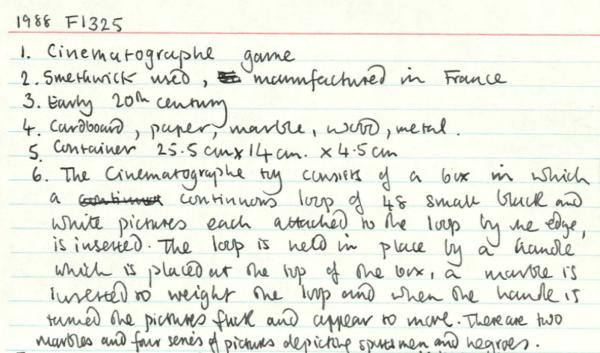 1988 F1325
1. Cinematographe game
2. Smethwick used, manufactured in France
3. Early 20th century
4. Cardboard, paper, marble, wood, metal.
5. Container 25.5cm x 14cm. x 4.5cm
6. The Cinematographe toy consists of a box in which
a continuous loop of 48 small black and
white pictures each attached to the loop by one edge,
is inserted. The loop is held in place by a handle
which is placed at the top of the box, a marble is
inserted to weight the loop and when the handle is
turned the pictures flick and appear to move. There are two
marbles and four series of pictures depicting sportsmen and negroes.